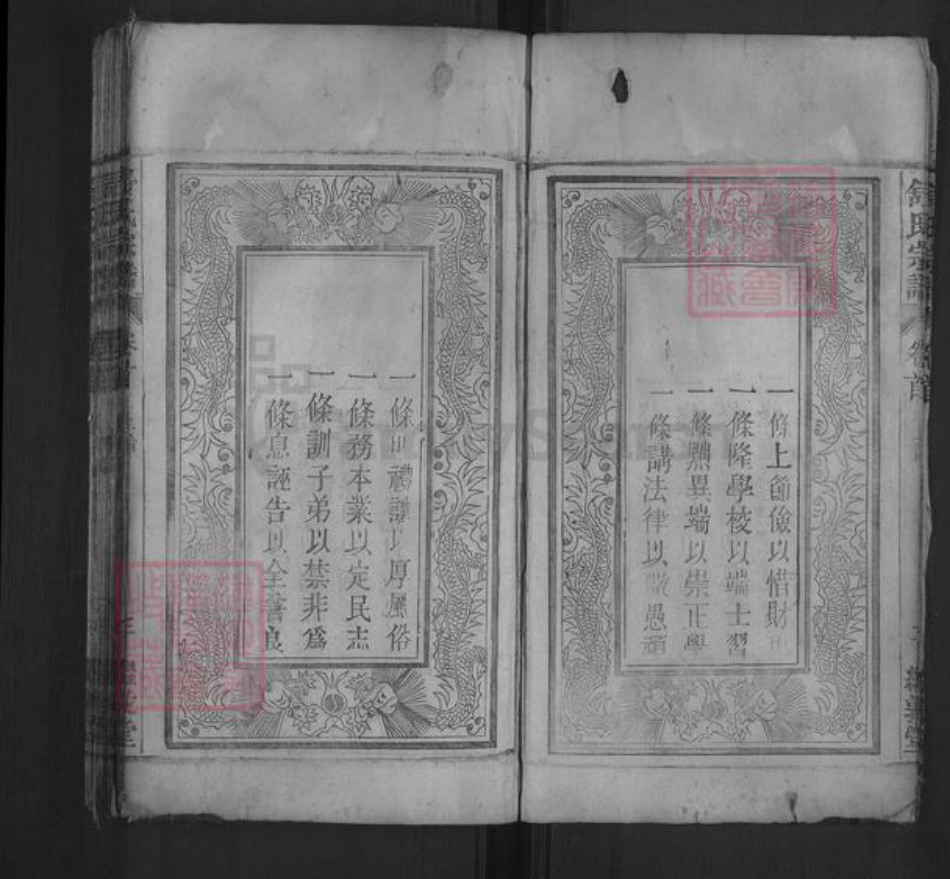 一條上節儉以惜財
一條隆學校以端士習
一條黜異端以崇正學
一條講法律以愚頑
一條禮讓以厚風俗
一條務本業以定民志
一條訓子弟以禁非為
一條息誣告以全善良
舒氏宗譜
卷首